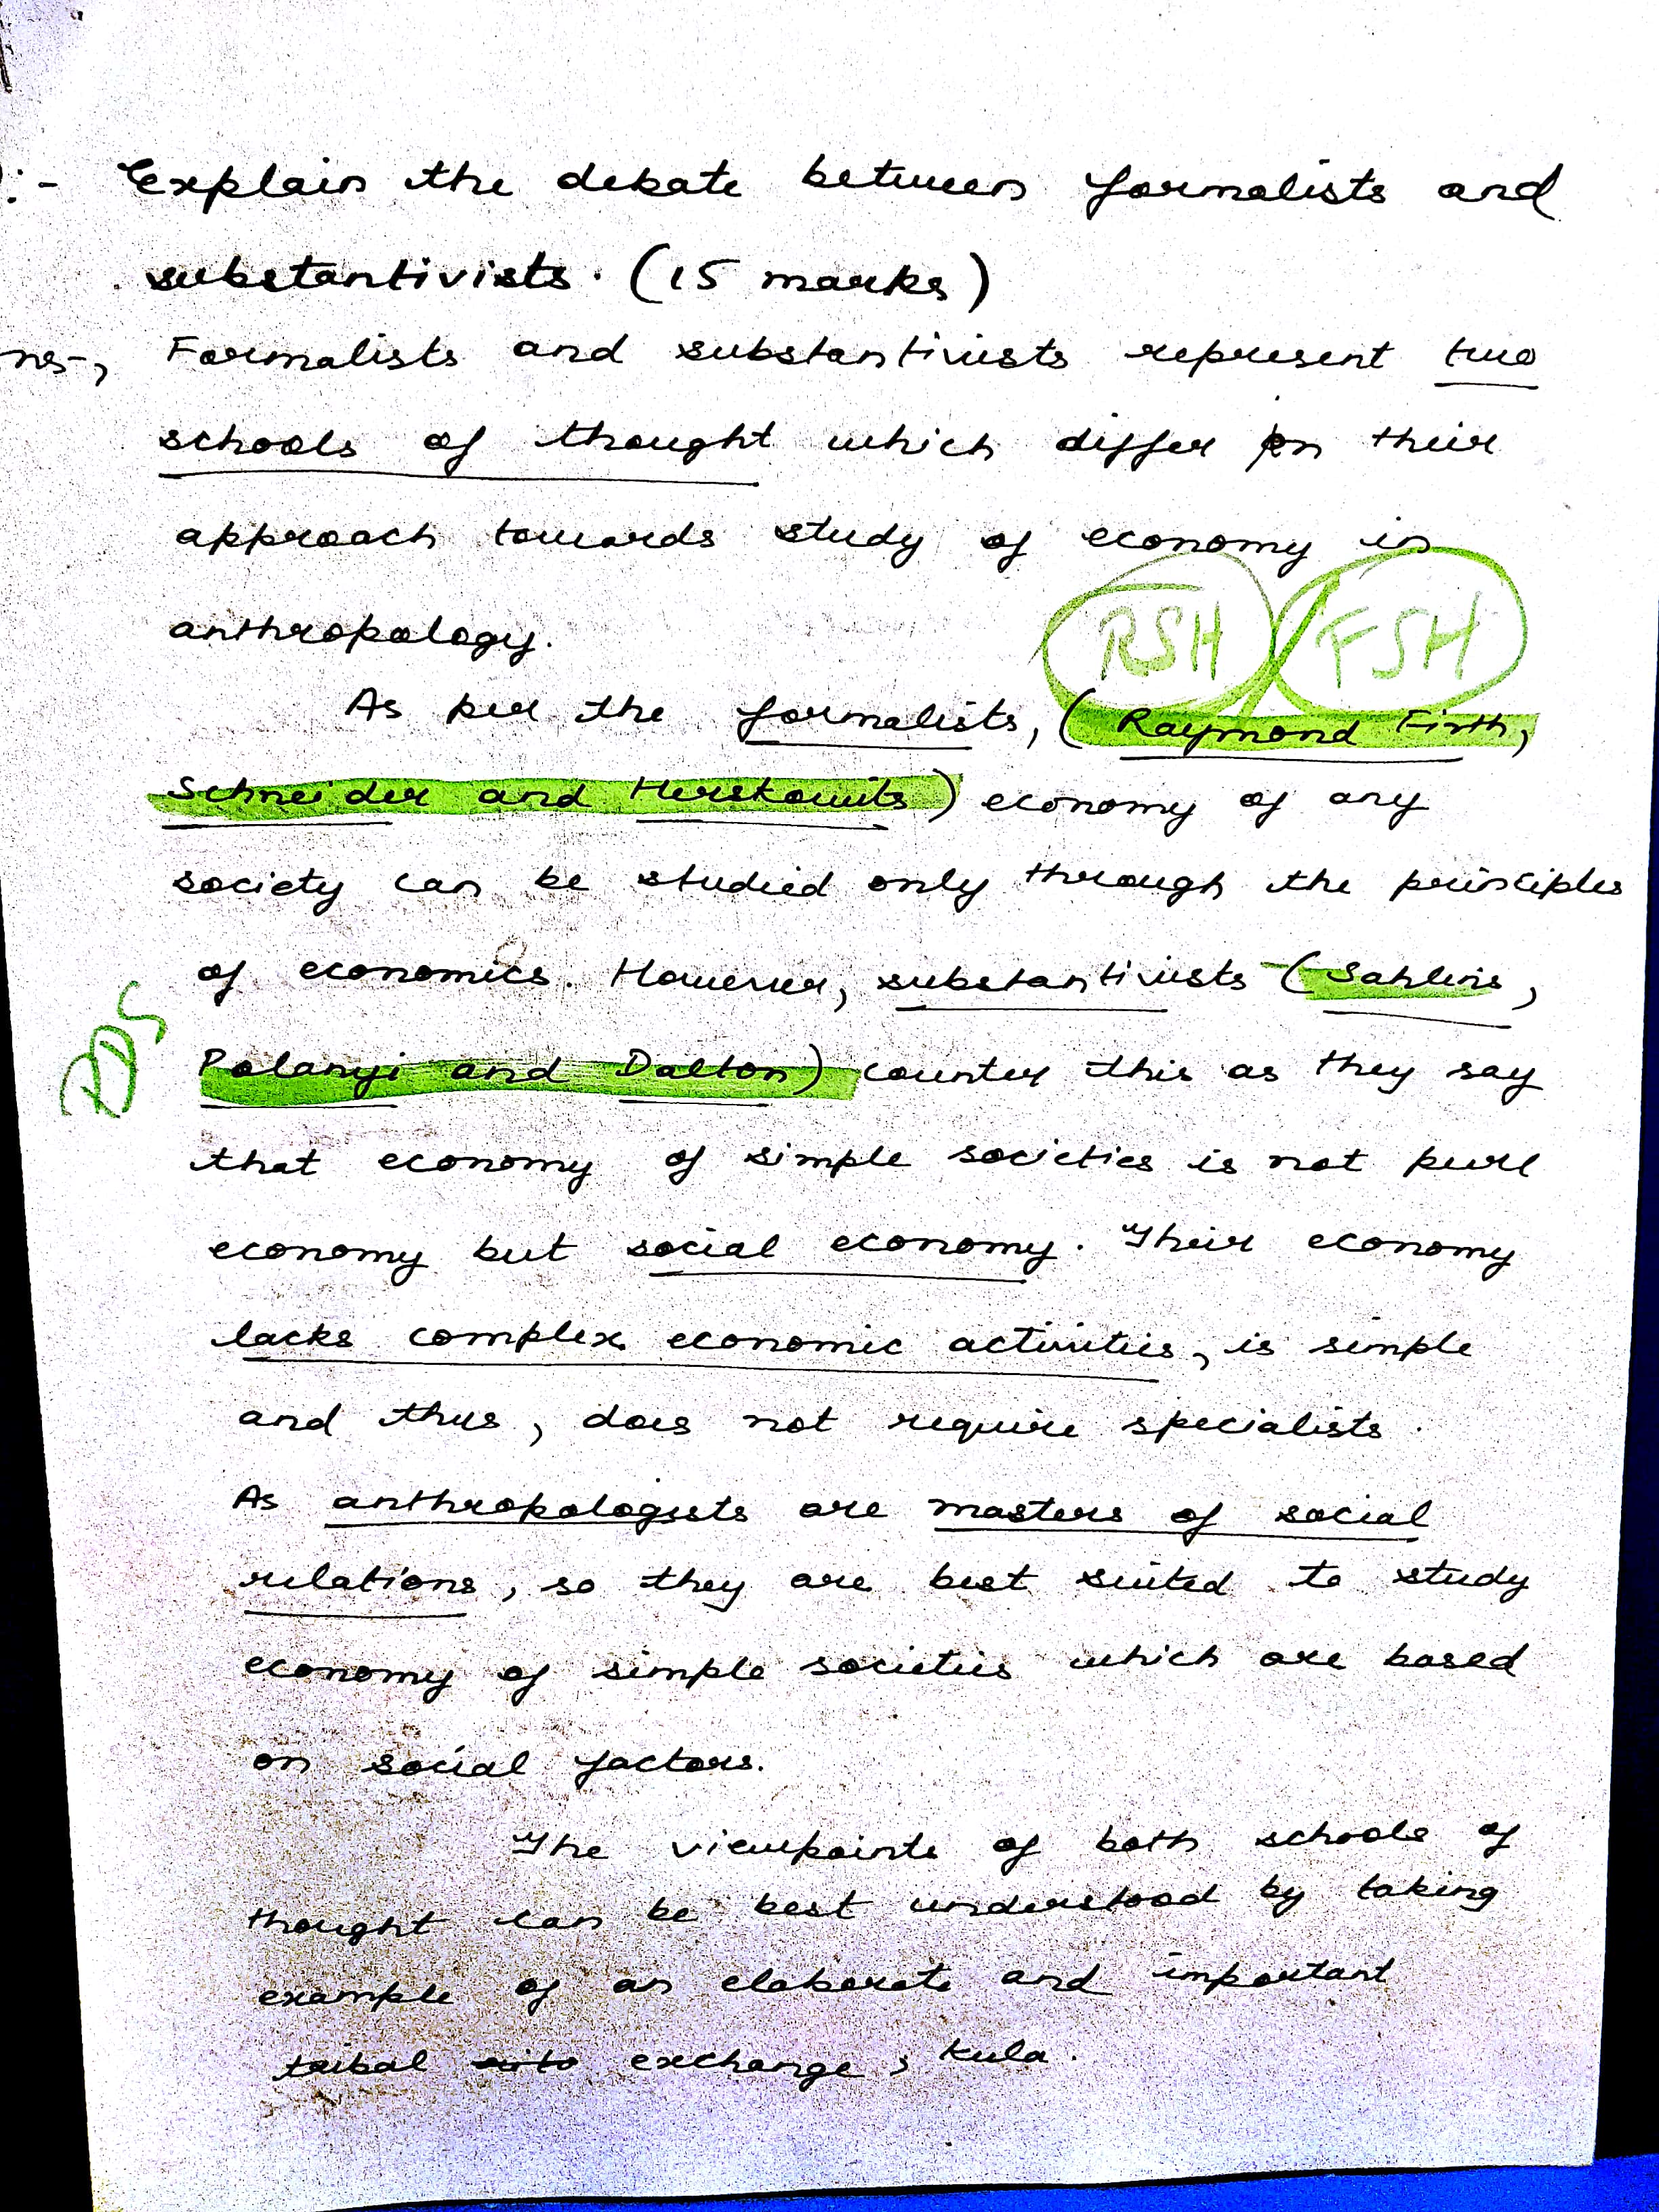 :- Explain the debate between formalists and
substantivists. (15 marks)
ns-, Formalists and substantivists represent two
schools of thought which differ in their
approach towards study of economy in
anthropology.
RSH FSH
As per the formalists, (Raymond Firth,
Schneider and Herskowits) economy of any
society can be studied only through the principles
of economics. However, substantivists (Sahlins,
Polanyi and Dalton) counter this as they say
that economy of simple societies is not pure
economy but social economy. Their economy
lacks complex economic activities, is simple
and thus, does not require specialists.
As anthropologists are masters of social
relations, so they are best suited to study
economy of simple societies which are based
on social factors.
The viewpoints of both schools of
thought can be best understood by taking
example of an elaborate and important
tribal exchange, Kula.